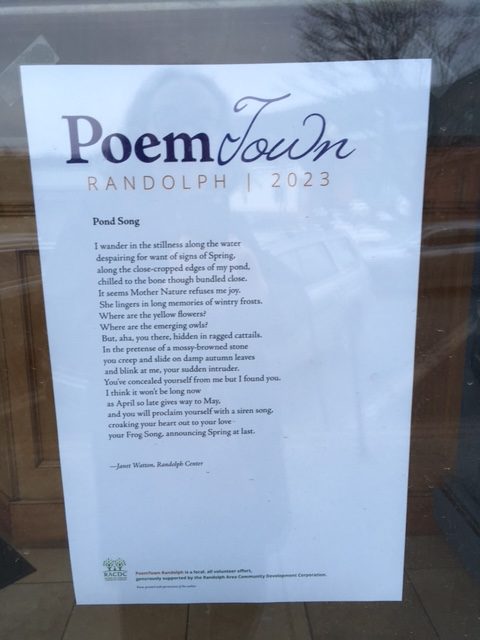 PoemTown
RANDOLPH | 2023
Pond Song
I wander in the stillness along the water
despairing for want of signs of Spring,
along the close-cropped edges of my pond,
chilled to the bone though bundled close.
It seems Mother Nature refuses me joy.
She lingers in long memories of wintry frosts.
Where are the yellow flowers?
Where are the emerging owls?
But, aha, you there, hidden in ragged cattails.
In the pretense of a mossy-browned stone
you creep and slide on damp autumn leaves
and blink at me, your sudden intruder.
You've concealed yourself from me but I found you.
I think it won't be long now
as April so late gives way to May,
and you will proclaim yourself with a siren song,
croaking your heart out to your love
your Frog Song, announcing Spring at last.
—Janet Watton, Randolph Center
RACDC
PoemTown Randolph is a local, all volunteer effort,
generously supported by the Randolph Area Community Development Corporation.